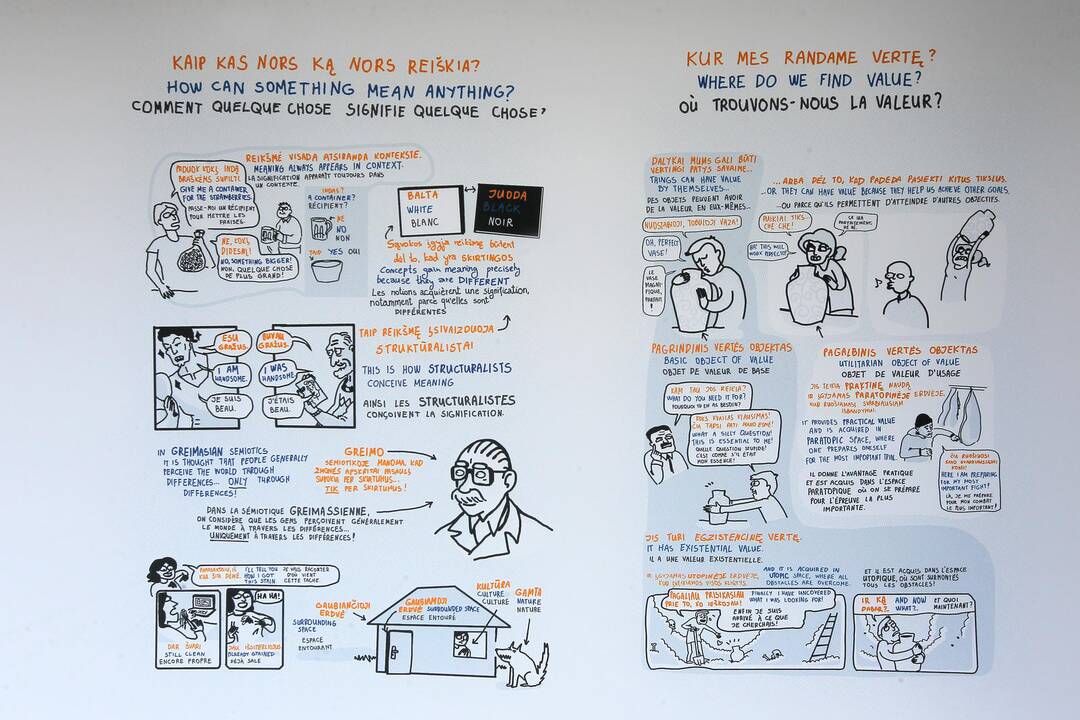 KAIP KAS NORS KĄ NORS REIŠKIA?
HOW CAN SOMETHING MEAN ANYTHING?
COMMENT QUELQUE CHOSE SIGNIFIE QUELQUE CHOSE?
REIKŠMĖ VISADA ATSIRANDA KONTEKSTE.
MEANING ALWAYS APPEARS IN CONTEXT.
LA SIGNIFICATION APPARAÎT TOUJOURS DANS
UN CONTEXTE.
PADUOK KOKĮ INDĄ
BRAŠKĖMS SUPILTI.
GIVE ME A CONTAINER
FOR THE STRAWBERRIES.
PASSE-MOI UN RÉCIPIENT
POUR METTRE LES
FRAISES.
NE, KOKĮ
DIDESNĮ!
NO, SOMETHING BIGGER!
NON, QUELQUE CHOSE
DE PLUS GRAND!
INDAS?
A CONTAINER?
RÉCIPIENT?
NE
NO
NON
TAIP YES OUI
BALTA
WHITE
BLANC
JUODA
BLACK
NOIR
Sąvokos įgyja reikšmę būtent
dėl to, kad yra SKIRTINGOS
Concepts gain meaning precisely
because they are DIFFERENT
Les notions acquièrent une signification,
notamment parce qu'elles sont
DIFFÉRENTES
ESU
GRAŽUS.
I AM
HANDSOME.
JE SUIS
BEAU.
BUVAU
GRAŽUS.
I WAS
HANDSOME.
J'ÉTAIS
BEAU.
TAIP REIKŠMĘ ĮSIVAIZDUOJA
STRUKTŪRALISTAI
THIS IS HOW STRUCTURALISTS
CONCEIVE MEANING
AINSI LES STRUCTURALISTES
CONÇOIVENT LA SIGNIFICATION.
IN GREIMASIAN SEMIOTICS
IT IS THOUGHT THAT PEOPLE GENERALLY
PERCEIVE THE WORLD THROUGH
DIFFERENCES... ONLY THROUGH
DIFFERENCES!
GREIMO
SEMIOTIKOJE MANOMA, KAD
ŽMONĖS APSKRITAI PASAULĮ
SUVOKIA PER SKIRTUMUS...
TIK PER SKIRTUMUS!
DANS LA SÉMIOTIQUE GREIMASSIENNE,
ON CONSIDÈRE QUE LES GENS PERÇOIVENT GÉNÉRALEMENT
LE MONDE À TRAVERS LES DIFFÉRENCES...
UNIQUEMENT À TRAVERS LES DIFFÉRENCES!
PAPASAKOSIU, IŠ
KUR ŠIA DĖMĖ.
I'LL TELL YOU
HOW I GOT
THIS STAIN
JE VAIS RACONTER
D'OÙ VIENT
CETTE TACHE
HA HA!
DAR ŠVARI
STILL CLEAN
ENCORE PROPRE
JAU IŠSITERLIOJUS
ALREADY STAINED
DÉJÀ SALE
GAUBIANČIOJI
ERDVĖ
SURROUNDING
SPACE
ESPACE
ENTOURANT
GAUBIAMOJI
ERDVĖ SURROUNDED SPACE
ESPACE ENTOURÉ
KULTŪRA
CULTURE
CULTURE
GAMTA
NATURE
NATURE
KUR MES RANDAME VERTĘ?
WHERE DO WE FIND VALUE?
OÙ TROUVONS-NOUS LA VALEUR?
DALYKAI MUMS GALI BŪTI
VERTINGI PATYS SAVAIME...
THINGS CAN HAVE VALUE
BY THEMSELVES...
DES OBJETS PEUVENT AVOIR
DE LA VALEUR EN EUX-MÊMES...
...ARBA DĖL TO, KAD PADEDA PASIEKTI KITUS TIKSLUS.
...OR THEY CAN HAVE VALUE BECAUSE THEY HELP US ACHIEVE OTHER GOALS.
...OU PARCE QU'ILS PERMETTENT D'ATTEINDRE D'AUTRES OBJECTIFS.
NUOSTABIOJI, TOBULOJI VAZA!
OH, PERFECT
VASE!
LE
VASE
MAGNI-
FIQUE,
PARFAIT
!
PUIKIAI TIKS...
CHE CHE!
HA! THIS WILL
WORK PERFECTLY
ÇA IRA
PARFAITEMENT
PAGRINDINIS VERTĖS OBJEKTAS
BASIC OBJECT OF VALUE
OBJET DE VALEUR DE BASE
PAGALBINIS VERTĖS OBJEKTAS
UTILITARIAN OBJECT OF VALUE
OBJET DE VALEUR D'USAGE
KAM TAU JOS REIKIA?
WHAT DO YOU NEED IT FOR?
POURQUOI TU EN AS BESOIN?
KOKS KVAILAS KLAUSIMAS!
ČIA TARSI PATI MANO ESMĖ!
WHAT A SILLY QUESTION!
THIS IS ESSENTIAL TO ME!
QUELLE QUESTION STUPIDE!
C'EST COMME S'IL ÉTAIT
MON ESSENCE!
JIS TEIKIA PRAKTINĘ NAUDĄ
IR ĮGYJAMAS PARATOPINĖJE ERDVĖJE,
KUR RUOŠIAMASI SVARBIAUSIAM
IŠBANDYMUI.
IT PROVIDES PRACTICAL VALUE
AND IS ACQUIRED IN
PARATOPIC SPACE, WHERE
ONE PREPARES ONESELF
FOR THE MOST IMPORTANT TRIAL.
IL DONNE L'AVANTAGE PRATIQUE
ET EST ACQUIS DANS L'ESPACE
PARATOPIQUE OÙ ON SE PRÉPARE
POUR L'ÉPREUVE LA PLUS
IMPORTANTE.
ČIA RUOŠIUOSI
SAVO SVARBIAUSIAI
KOVAI!
HERE I AM PREPARING
FOR MY MOST
IMPORTANT FIGHT!
LÀ, JE ME PRÉPARE
POUR MON COMBAT
LE PLUS IMPORTANT!
JIS TURI EGZISTENCINĘ VERTĘ.
IT HAS EXISTENTIAL VALUE.
IL A UNE VALEUR EXISTENTIELLE.
IR ĮGYJAMAS UTOPINĖJE ERDVĖJE,
AND IT IS ACQUIRED IN
UTOPIC SPACE, WHERE ALL
OBSTACLES ARE OVERCOME.
ET IL EST ACQUIS DANS L'ESPACE
UTOPIQUE, OÙ SONT SURMONTÉS
TOUS LES OBSTACLES!
PAGALIAU PRISIKASIAU
PRIE TO, KO IEŠKOJAU!
FINALLY I HAVE UNCOVERED
WHAT I WAS LOOKING FOR!
ENFIN JE SUIS
ARRIVÉ À CE QUE
JE CHERCHAIS!
IR KĄ
DABAR?
AND NOW
WHAT?
ET QUOI
MAINTENANT?